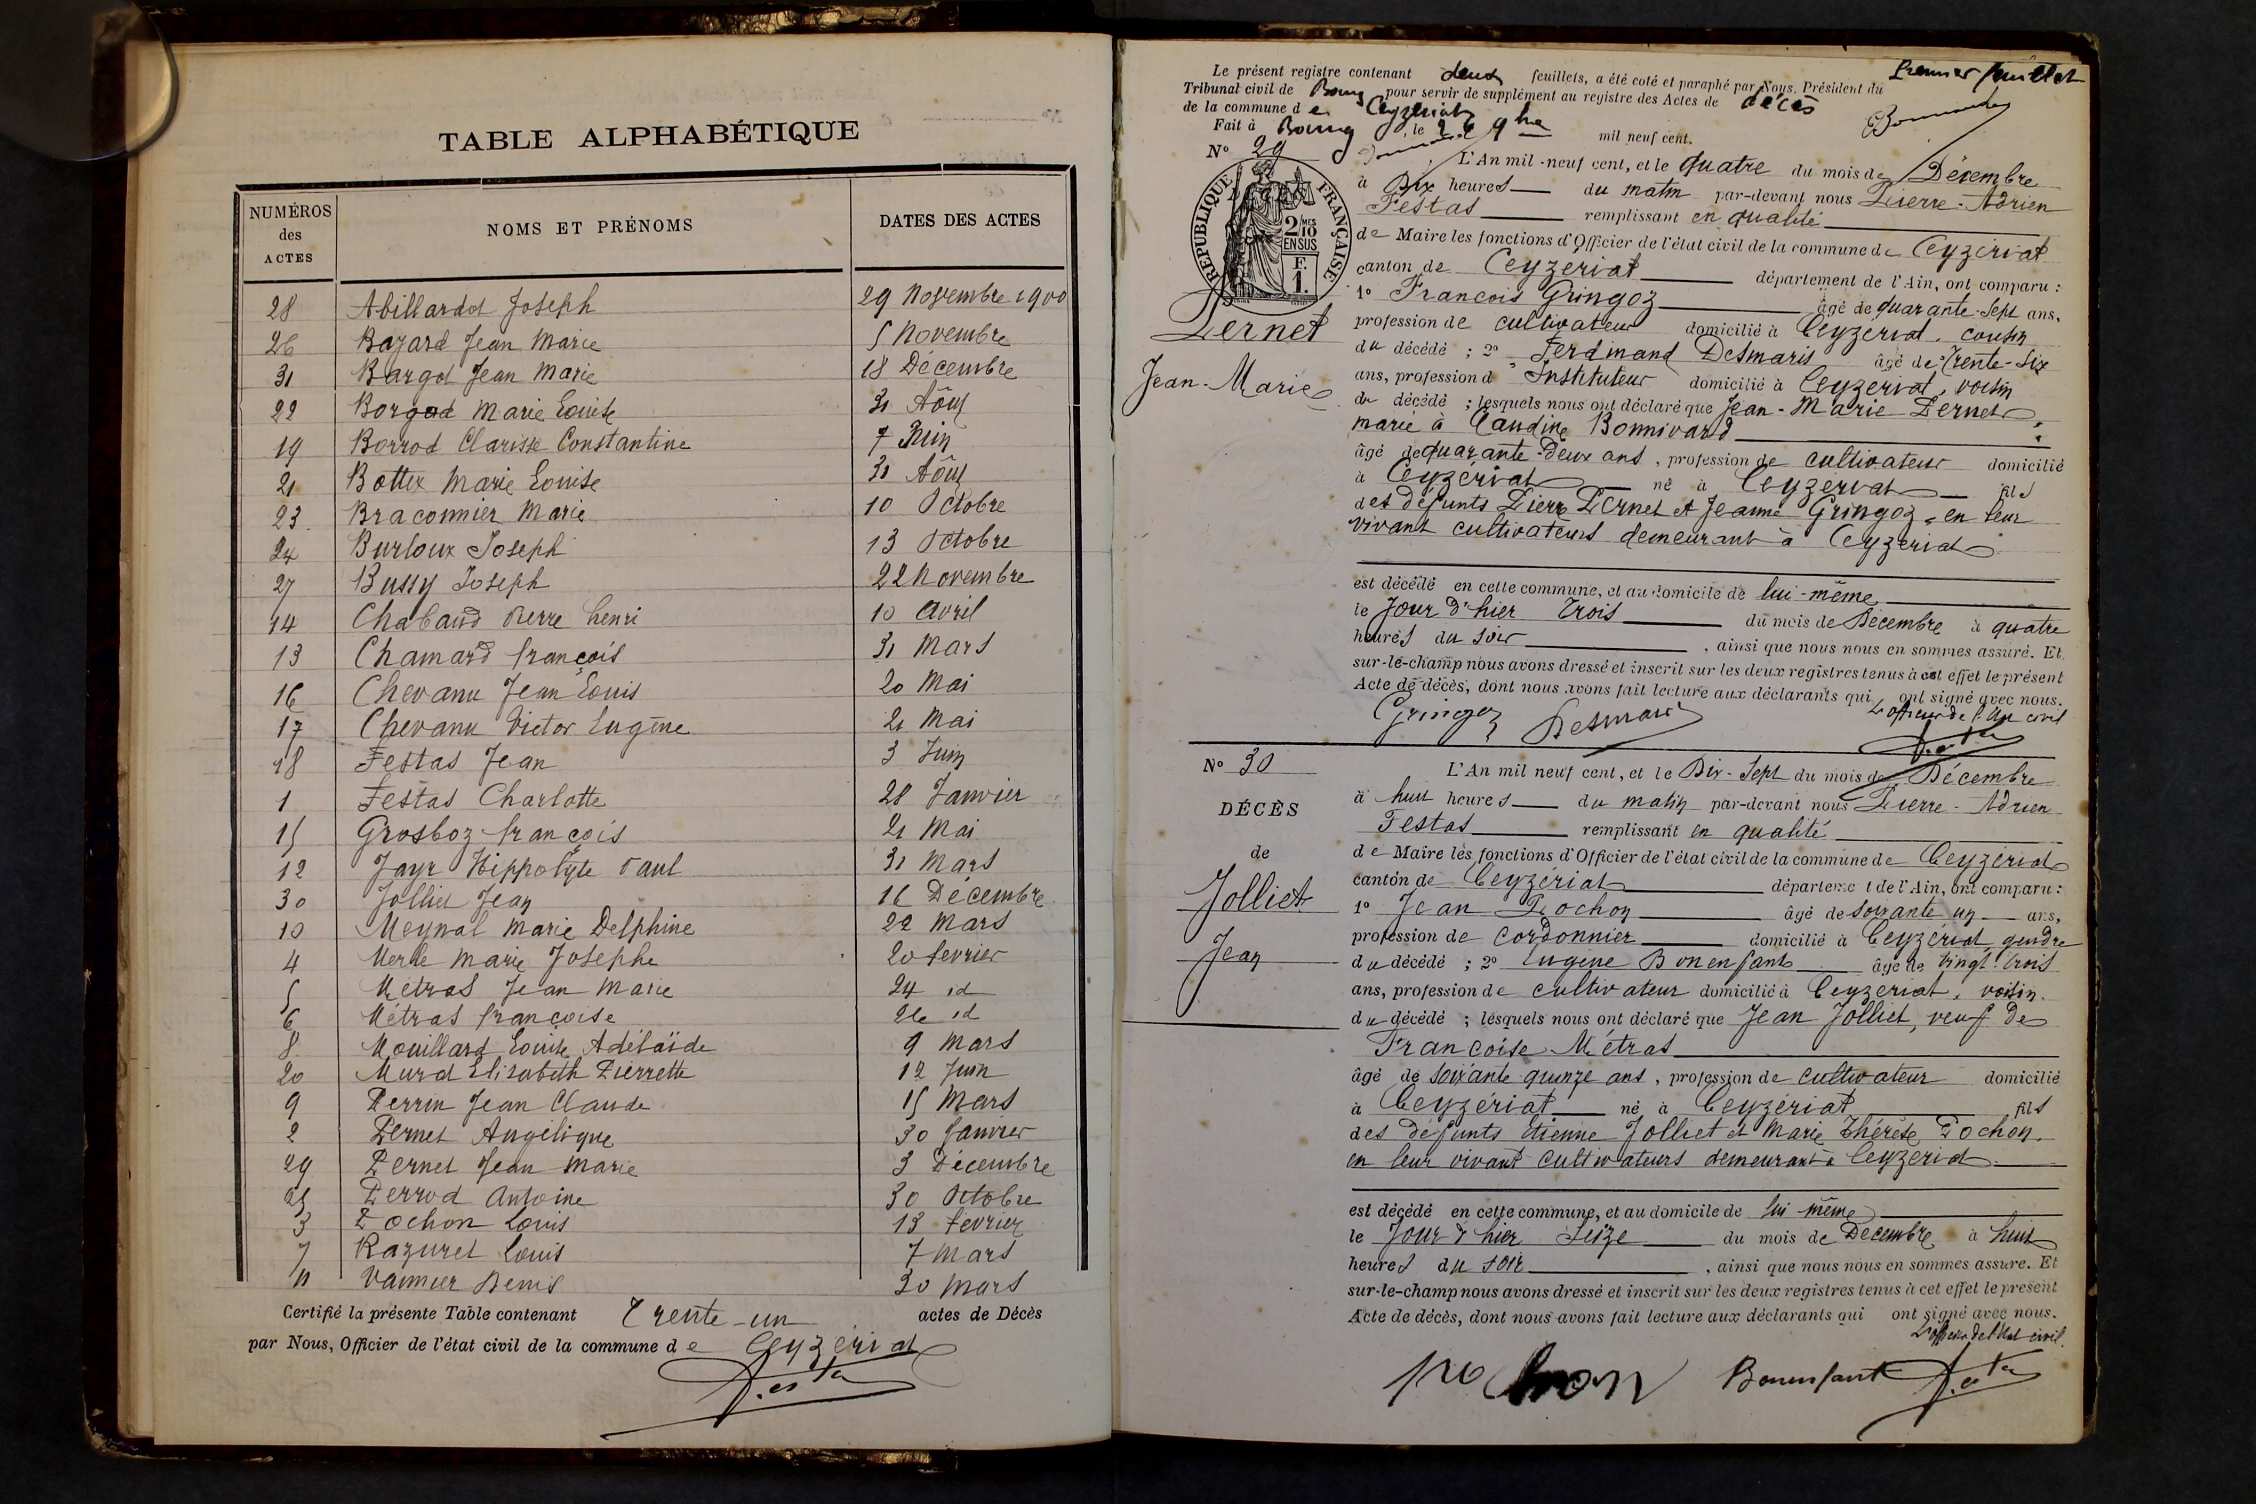 TABLE ALPHABÉTIQUE
NUMÉROS des ACTES NOMS ET PRÉNOMS DATES DES ACTES
28 Abillardot Joseph 29 Novembre 1900
26 Bazard Jean Marie 5 Novembre
31 Bargot Jean Marie 18 Décembre
22 Borgod Marie Louise 31 Aôut
19 Borrod Clarisse Constantine 7 Juin
21 Bottex Marie Louise 31 Aôut
23 Braconnier Marie 10 Octobre
24 Burloux Joseph 13 Octobre
27 Bussy Joseph 22 Novembre
14 Chaband Pierre henri 10 Avril
13 Chamard françois 31 Mars
16 Chevanu Jean Louis 20 Mai
17 Chevanu Victor Eugène 21 Mai
18 Festas Jean 3 Juin
1 Festas Charlotte 28 Janvier
15 Grosboz françois 21 Mai
12 Jayr Hippolyte Paul 31 Mars
30 Jolliet Jean 16 Décembre
10 Meynal Marie Delphine 22 Mars
4 Merle Marie Josephe 20 fevrier
5 Metras Jean Marie 24 id
6 Métras françoise 26 id
8 Mouillard Louise Adélaïde 9 Mars
20 Murd Elisabeth Pierrette 12 Juin
9 Perrin Jean Claude 15 Mars
2 Pernet Angélique 30 Janvier
29 Pernet Jean Marie 3 Décembre
25 Perrod Antoine 30 Octobre
3 Pochon Louis 13 fevrier
7 Razuret Louis 7 Mars
11 Vannier Denis 30 Mars
Certifié la présente Table contenant Trente-un actes de Décès
par Nous, Officier de l'état civil de la commune de Ceyzériat
Festas
Premier feuillet
Le présent registre contenant deux feuillets, a été coté et paraphé par Nous, Président du
Tribunal civil de Bourg pour servir de supplément au registre des Actes de décès
de la commune de Ceyzeriat
Fait à Bourg, le 26 9bre mil neuf cent.
N° 29
RÉPUBLIQUE FRANÇAISE
2/10 MES EN SUS
F. 1.
Pernet
Jean-Marie
L'An mil-neuf cent, et le quatre du mois de Décembre
à Dix heures du matin par-devant nous Pierre-Adrien
Festas remplissant en qualité
de Maire les fonctions d'Officier de l'état civil de la commune de Ceyzériat
canton de Ceyzeriat département de l'Ain, ont comparu :
1° Francois Gringoz âgé de quarante-Sept ans,
profession de cultivateur domicilié à Ceyzériat, cousin
du décédé ; 2° Ferdinand Desmaris âgé de Trente-Six
ans, profession d' Instituteur domicilié à Ceyzériat, voisin
du décédé ; lesquels nous ont déclaré que Jean-Marie Pernet,
marié à Claudine Bonnivard
âgé de quarante-Deux ans, profession de cultivateur domicilié
à Ceyzériat né à Ceyzériat fils
des défunts Pierre Pernet et Jeanne Gringoz, en leur
vivant cultivateurs demeurant à Ceyzériat
est décédé en cette commune, et au domicile de lui-même
le Jour d'hier Trois du mois de Décembre à quatre
heures du soir, ainsi que nous nous en sommes assuré. Et
sur-le-champ nous avons dressé et inscrit sur les deux registres tenus à cet effet le présent
Acte de décès, dont nous avons fait lecture aux déclarants qui ont signé avec nous.
L'officier de l'état civil
Gringoz Desmaris Festas
N° 30
DÉCÈS
de
Jolliet
Jean
L'An mil neuf cent, et le Dix-Sept du mois de Décembre
à huit heures du matin par-devant nous Pierre-Adrien
Festas remplissant en qualité
de Maire les fonctions d'Officier de l'état civil de la commune de Ceyzériat
canton de Ceyzériat départeme t de l'Ain, ont comparu :
1° Jean Pochon âgé de soixante un ans,
profession de cordonnier domicilié à Ceyzériat, gendre
du décédé ; 2° Eugène Bonenfant âgé de Vingt-trois
ans, profession de cultivateur domicilié à Ceyzeriat, voisin
du décédé ; lesquels nous ont déclaré que Jean Jolliet, veuf de
Françoise Métras
âgé de soixante quinze ans, profession de cultivateur domicilié
à Ceyzériat né à Ceyzériat fils
des défunts Etienne Jolliet et Marie Thérèse Pochon,
en leur vivant cultivateurs demeurant à Ceyzeriat
est décédé en cette commune, et au domicile de lui même
le Jour d'hier Seize du mois de Décembre à huit
heures du soir, ainsi que nous nous en sommes assuré. Et
sur-le-champ nous avons dressé et inscrit sur les deux registres tenus à cet effet le présent
Acte de décès, dont nous avons fait lecture aux déclarants qui ont signé avec nous.
L'officier de l'état civil.
pochon Bonenfant Festas